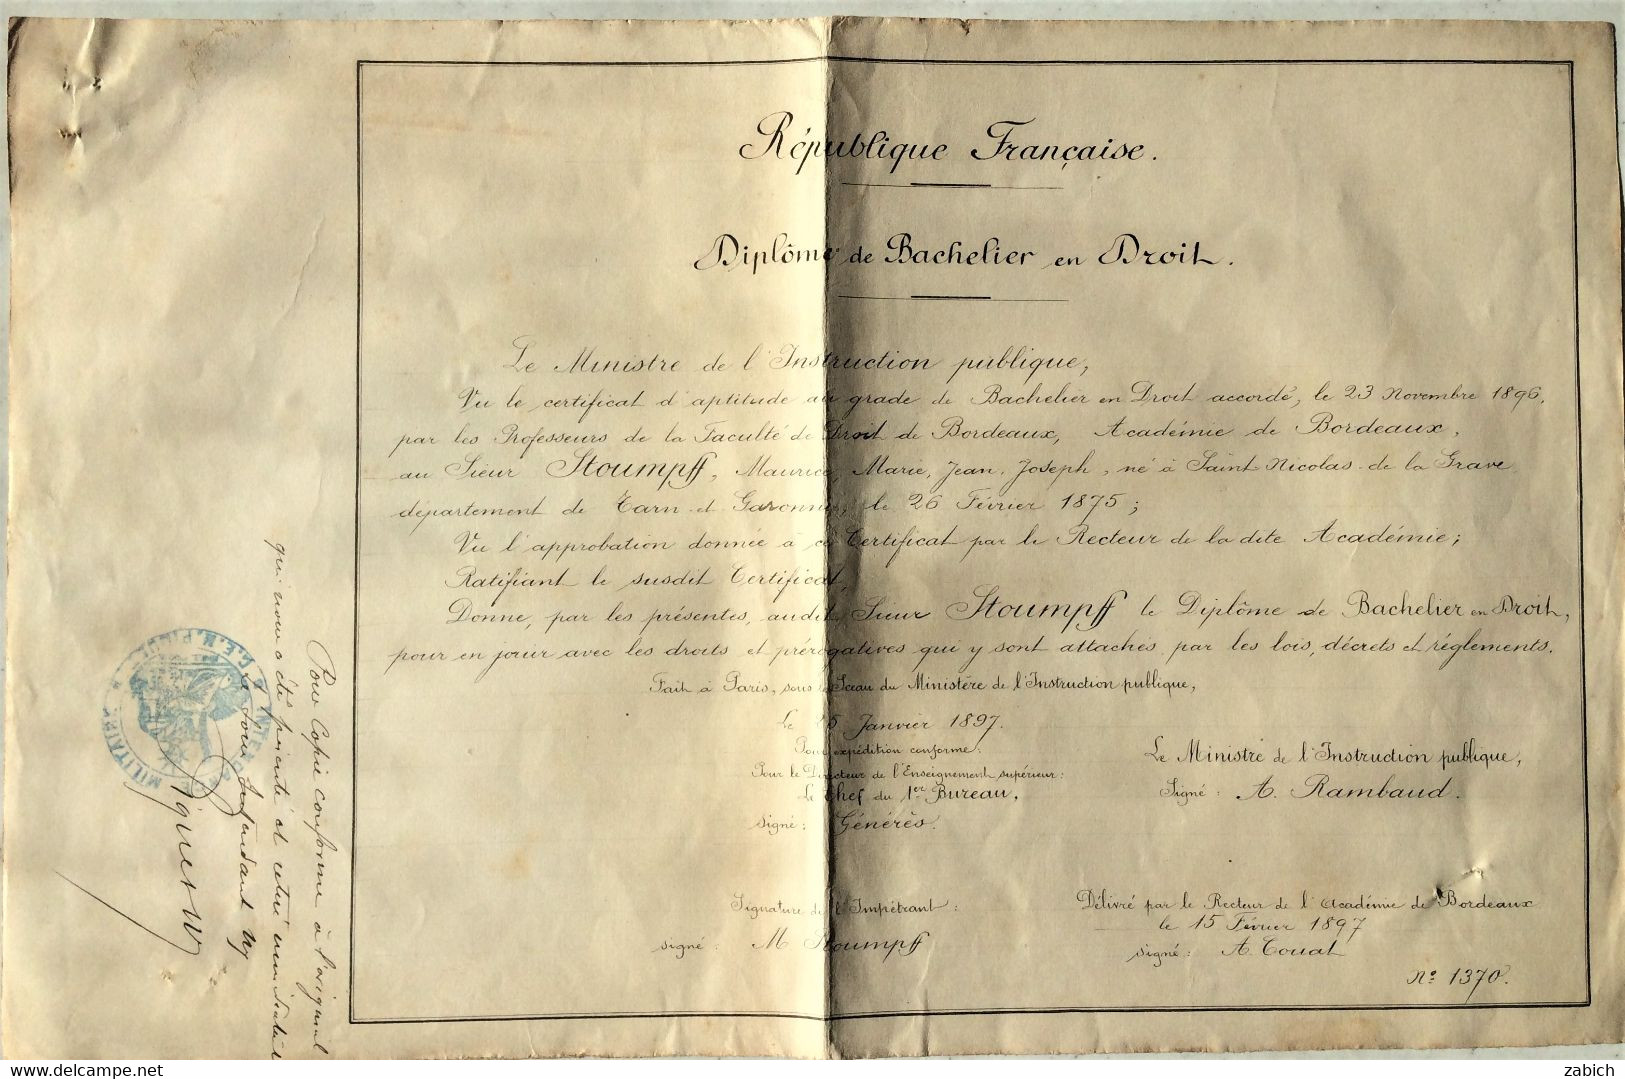 République Française.
Diplôme de Bachelier en Droit.
Le Ministre de l'Instruction publique,
Vu le certificat d'aptitude au grade de Bachelier en Droit accordé, le 23 Novembre 1896,
par les Professeurs de la Faculté de Droit de Bordeaux, Académie de Bordeaux,
au Sieur Stoumpff, Maurice, Marie, Jean, Joseph, né à Saint-Nicolas-de la Grave
département de Tarn-et-Garonne, le 26 Février 1875;
Vu l'approbation donnée à ce Certificat par le Recteur de la dite Académie;
Ratifiant le susdit Certificat,
Donne, par les présentes, audit Sieur Stoumpff le Diplôme de Bachelier en Droit,
pour en jouir avec les droits et prérogatives qui y sont attachés par les lois, décrets et règlements.
Fait à Paris, sous le Sceau du Ministère de l'Instruction publique,
Le 25 Janvier 1897.
Pour expédition conforme:
Pour le Directeur de l'Enseignement supérieur:
Le Chef du 1er Bureau,
signé: Générès.
Le Ministre de l'Instruction publique,
Signé: A. Rambaud.
Signature de l'Impétrant:
signé: M Stoumpff
Délivré par le Recteur de l'Académie de Bordeaux
le 15 Février 1897
signé: A. Couat
No 1370.
Pour Copie conforme à l'original
qui nous a été présenté et retiré immédiat
Le Sous Intendant
MILITAIRE
delcampe.net
zabich